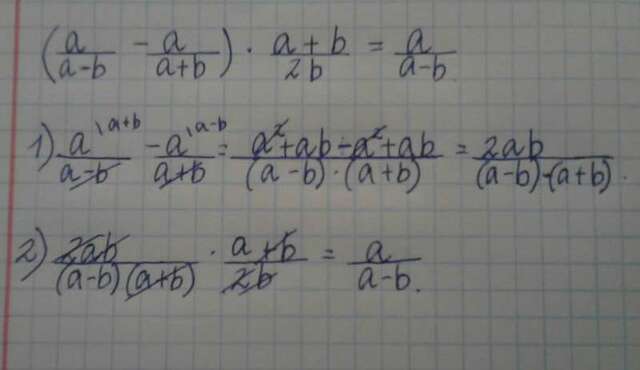 (a/(a-b) - a/(a+b)) · (a+b)/(2b) = a/(a-b).
1) a\a+b/(a-b) - a\a-b/(a+b) = (a²+ab-a²+ab)/((a-b)·(a+b)) = 2ab/((a-b)·(a+b)).
2) 2ab/((a-b)(a+b)) · (a+b)/(2b) = a/(a-b).